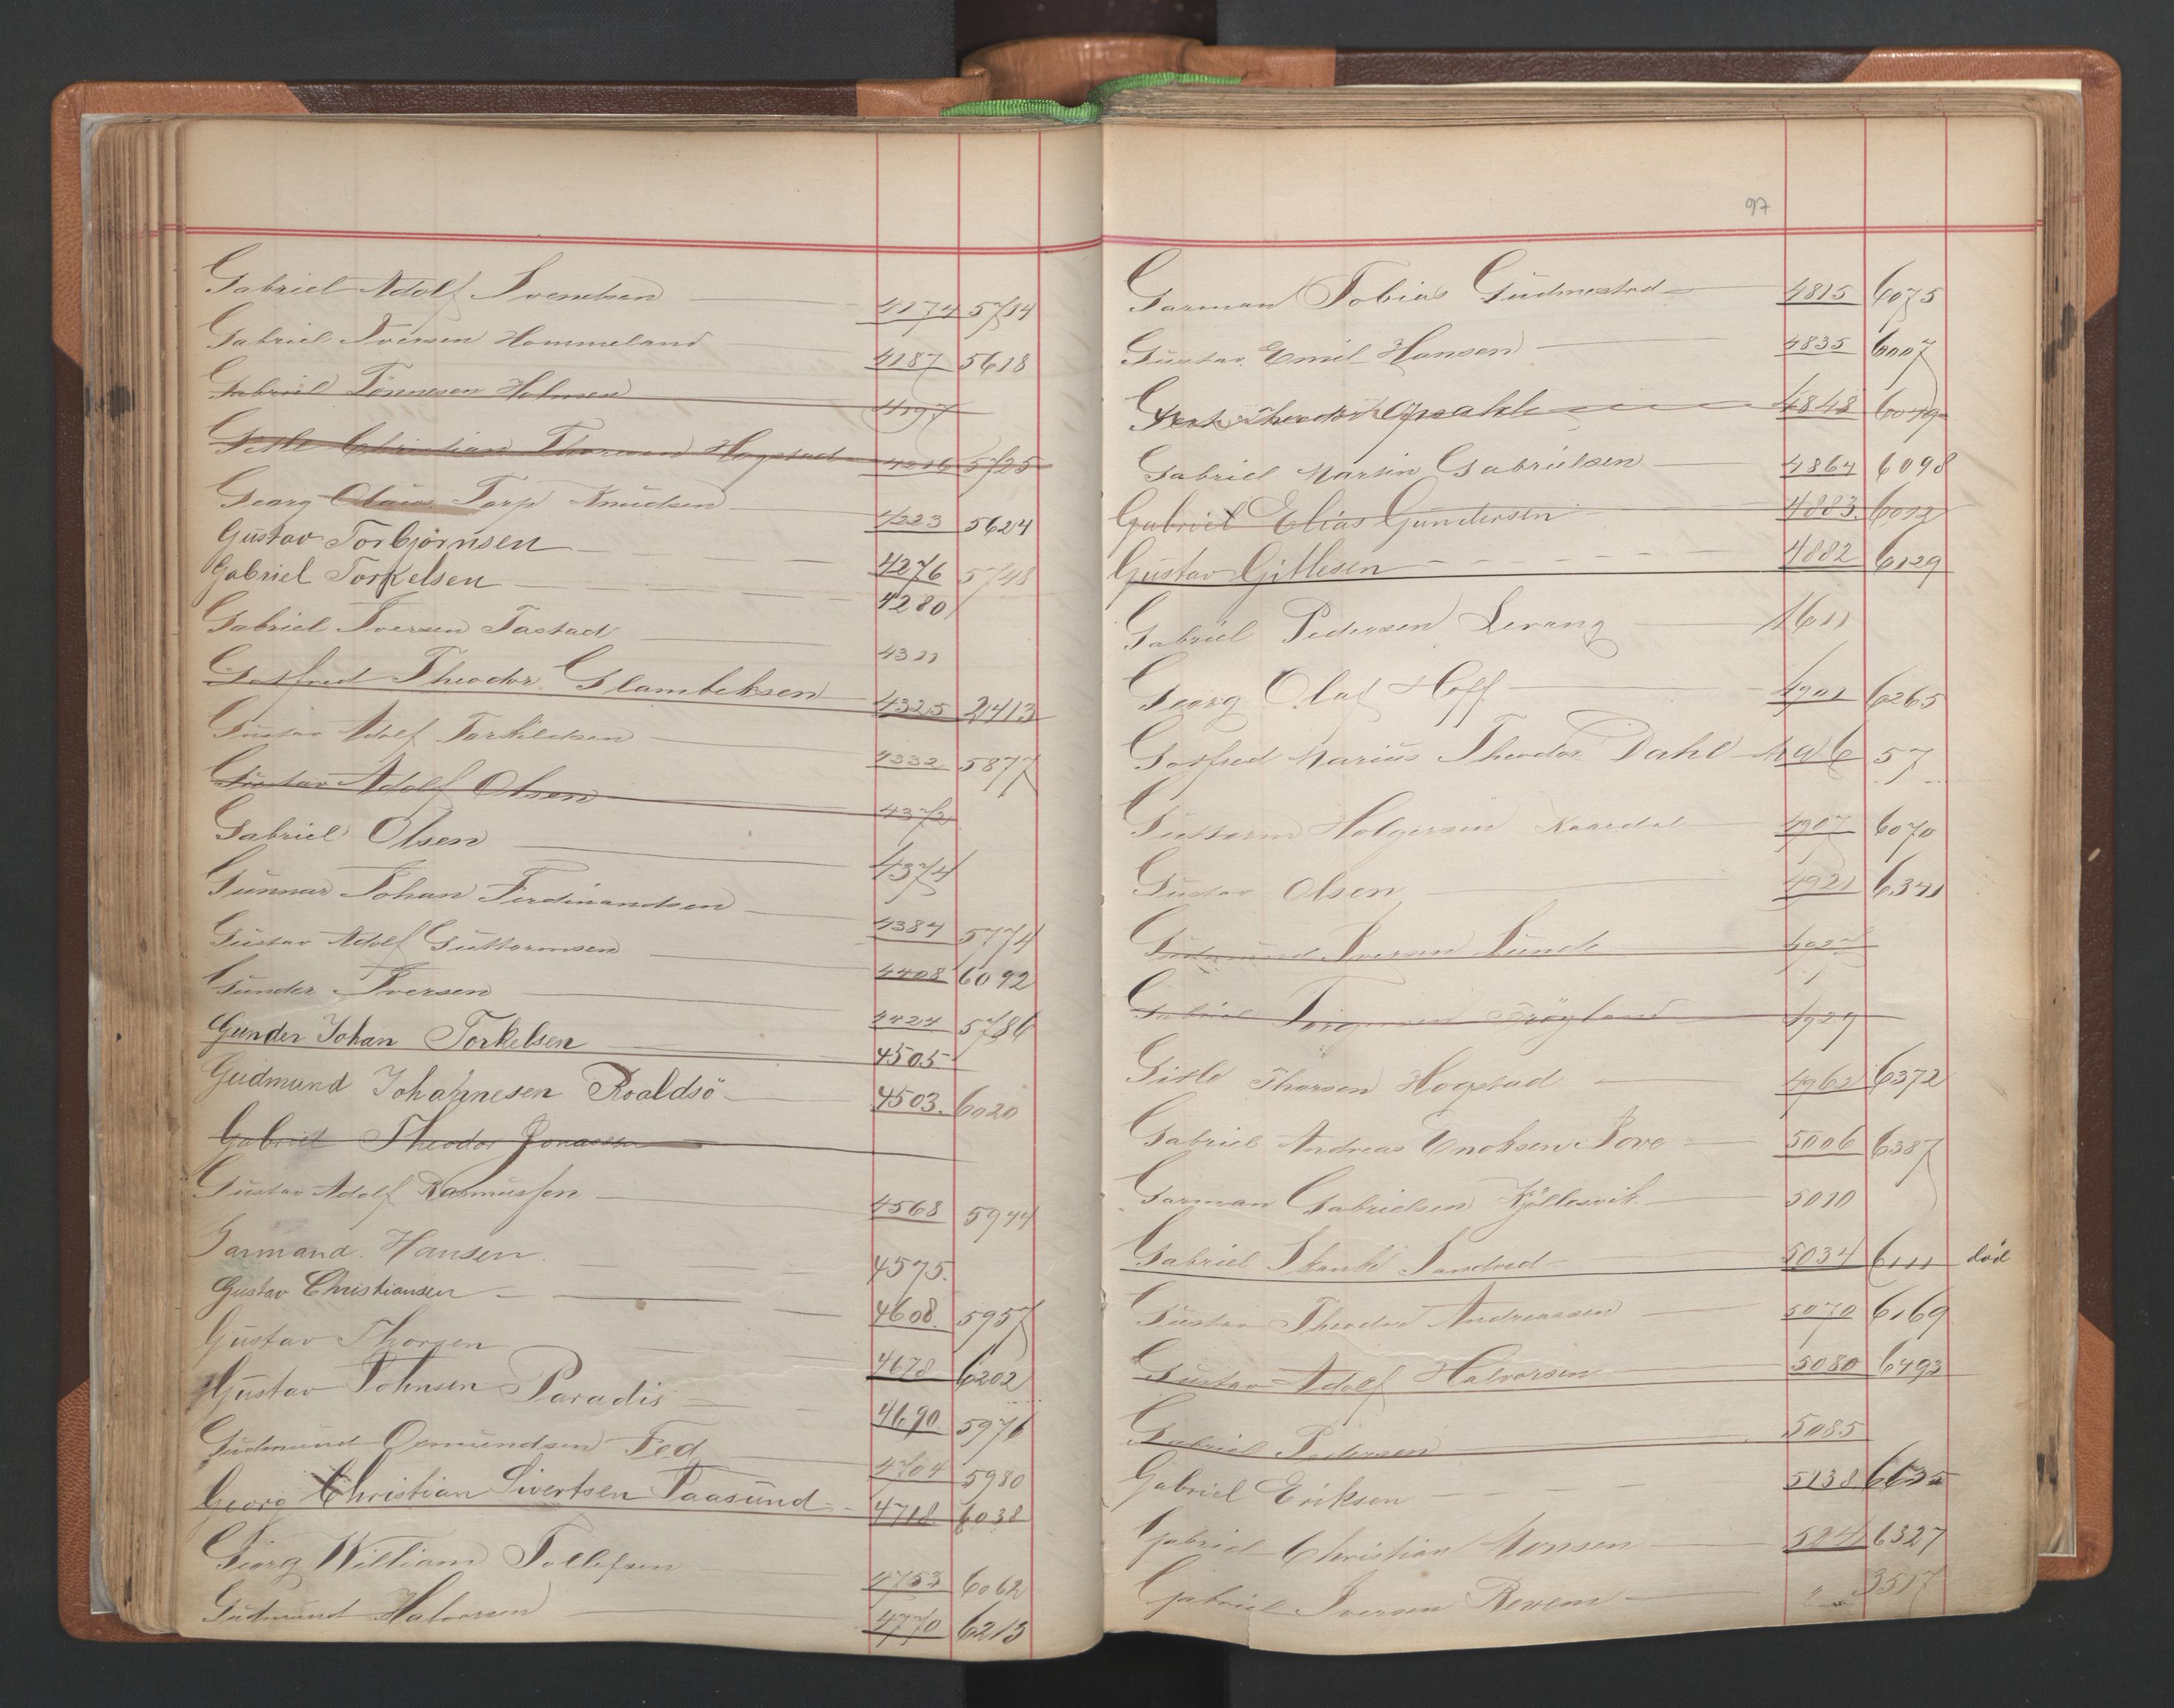 Gabriel Adolf Svendsen 4174 5714
Gabriel Iversen Hommeland 4187 5618
Gabriel Tönnesen Holmsen 4197
Gitle Christian Thorsen Hogstad 4216 5725
Georg Olaus Torp Knudsen 4223 5624
Gustav Torbjörnsen 4276 5748
Gabriel Torkelsen 4280
Gabriel Iversen Tastad 4311
Gotfred Theodor Glambeksen 4325 2413
Gustav Adolf Torkildsen 4332 5877
Gustav Adolf Olsen 4372
Gabriel Olsen 4374
Gunnar Johan Ferdinandsen 4384 5774
Gustav Adolf Guttormsen 4408 6092
Gunder Iversen 4424 5786
Gunder Johan Torkelsen 4505
Gudmund Johannesen Roaldsö 4503. 6020
Gabriel Theodor Jonassen
Gustav Adolf Rasmussen 4568 5944
Garmand. Hansen 4575.
Gustav Christiansen 4608. 5957
Gustav Thorsen 4678 6202
Gustav Johnsen Paradis 4690. 5976
Gudmund Osmundsen Fed 4704 5980
Georg Christian Sivertsen Paasund 4718 6038
Georg William Tollefsen 4753 6062
Gudmund Halvorsen 4770 6213
97
Garman Tobias Gudmestad 4815 6075
Gustav Emil Hansen 4835 6007
Theodor Opsahl 4848 6049
Gabriel Martin Gabrielsen 4864 6098
Gabriel Elias Gundersen 4883. 6012
Gustav Gitlesen 4882 6129
Gabriel Pedersen Levang 1611
Georg Olaf Hoff 4901 6265
Gotfred Marius Theodor Dahl 57
Guttorm Holgersen 4907 6070
Gustav Olsen 4921 6341
Gudmund Iversen Sunde
Gabriel Tröyland 4929
Gitle Thorsen Hogstad 4962 6372
Gabriel Andreas Enoksen Sove 5006 6387
Garman Gabrielsen Kjöllesvik 5010
Gabriel Skanke Sandved 5034 6111 död
Gustav Theodor Andreassen 5070 6169
Gustav Adolf Halvorsen 5080 6493
Gabriel Pedersen 5085
Gabriel Eriksen 5138
Gabriel Christian Monsen 6327
Gabriel Iversen Revem " 3517